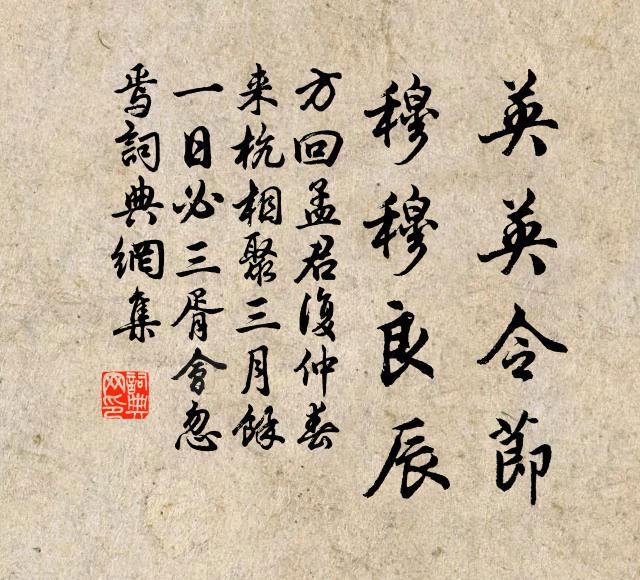 英英令節
穆穆良辰
方回孟君復仲春
来杭相聚三月餘
一日必三胥會忽
焉詞典網集
詞典
网印